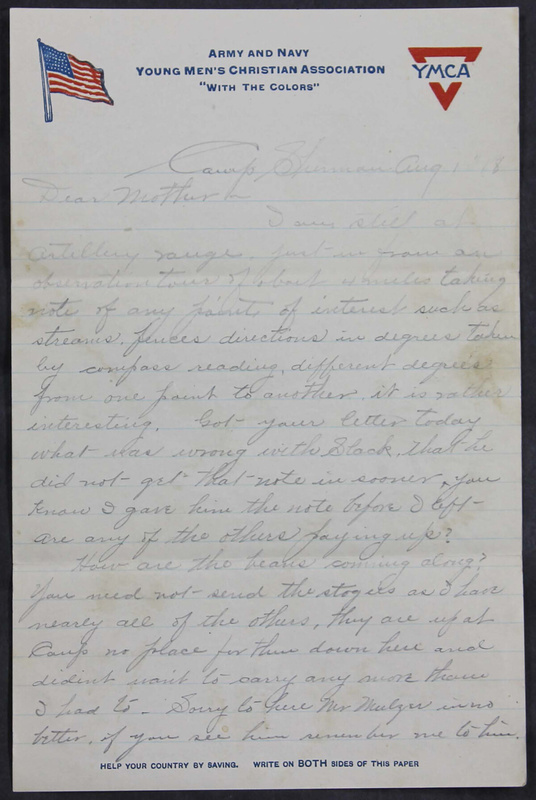 ARMY AND NAVY
YOUNG MEN'S CHRISTIAN ASSOCIATION
"WITH THE COLORS"
YMCA
Camp Sherman Aug 1 '18
Dear Mother
I am still at
artillery range, just in from an
observation tour of about miles taking
note of any points of interest such as
streams, fences directions in degrees taken
by compass reading, different degrees
from one point to another it is rather
interesting. Got your letter today
what was wrong with Slack, that he
did not get that note in sooner, you
know I gave him the note before I left-
are any of the others paying up?
How are the beans coming along?
You need not send the stogies as I have
nearly all of the others, they are up at
Camp no place for them down here and
didint want to carry any more than
I had to - Sorry to hear Mr is no
better, if you see him remember me to him.
HELP YOUR COUNTRY BY SAVING. WRITE ON BOTH SIDES OF THIS PAPER